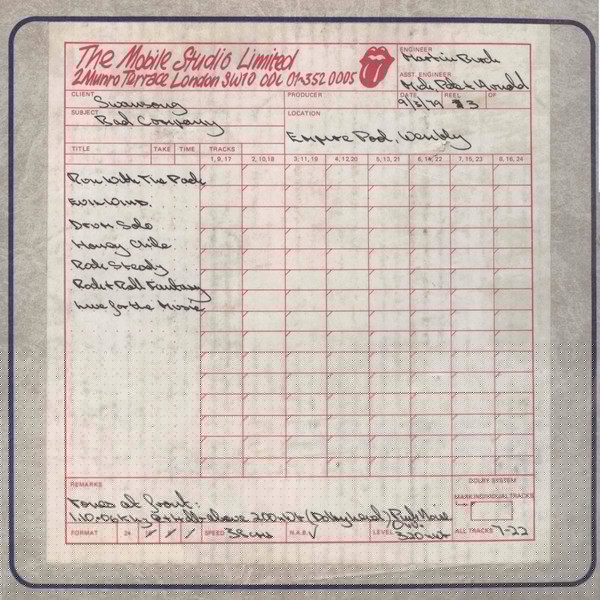 The Mobile Studio Limited
2 Munro Terrace London SW10 0DL 01-352 0005
ENGINEER
Martin Birch
ASST. ENGINEER
Mick, Pete + Nowold
CLIENT
Swansong
PRODUCER
DATE REEL OF
9/3/79 3
SUBJECT
Bad Company
LOCATION
Empire Pool, Wembley
TITLE TAKE TIME TRACKS
1, 9, 17 2, 10, 18 3, 11, 19 4, 12, 20 5, 13, 21 6, 14, 22 7, 15, 23 8, 16, 24
Run With The Pack
EVIL WIND.
Drum Solo
Honey Chile
Rock Steady
Rock + Roll Fantasy
Live for the Music
REMARKS
Tones at front:
DOLBY SYSTEM
MARK INDIVIDUAL TRACKS
FORMAT 24 16 8 4 SPEED 38 cms N.A.B. ✓ LEVEL 320 nwt ALL TRACKS 7-22